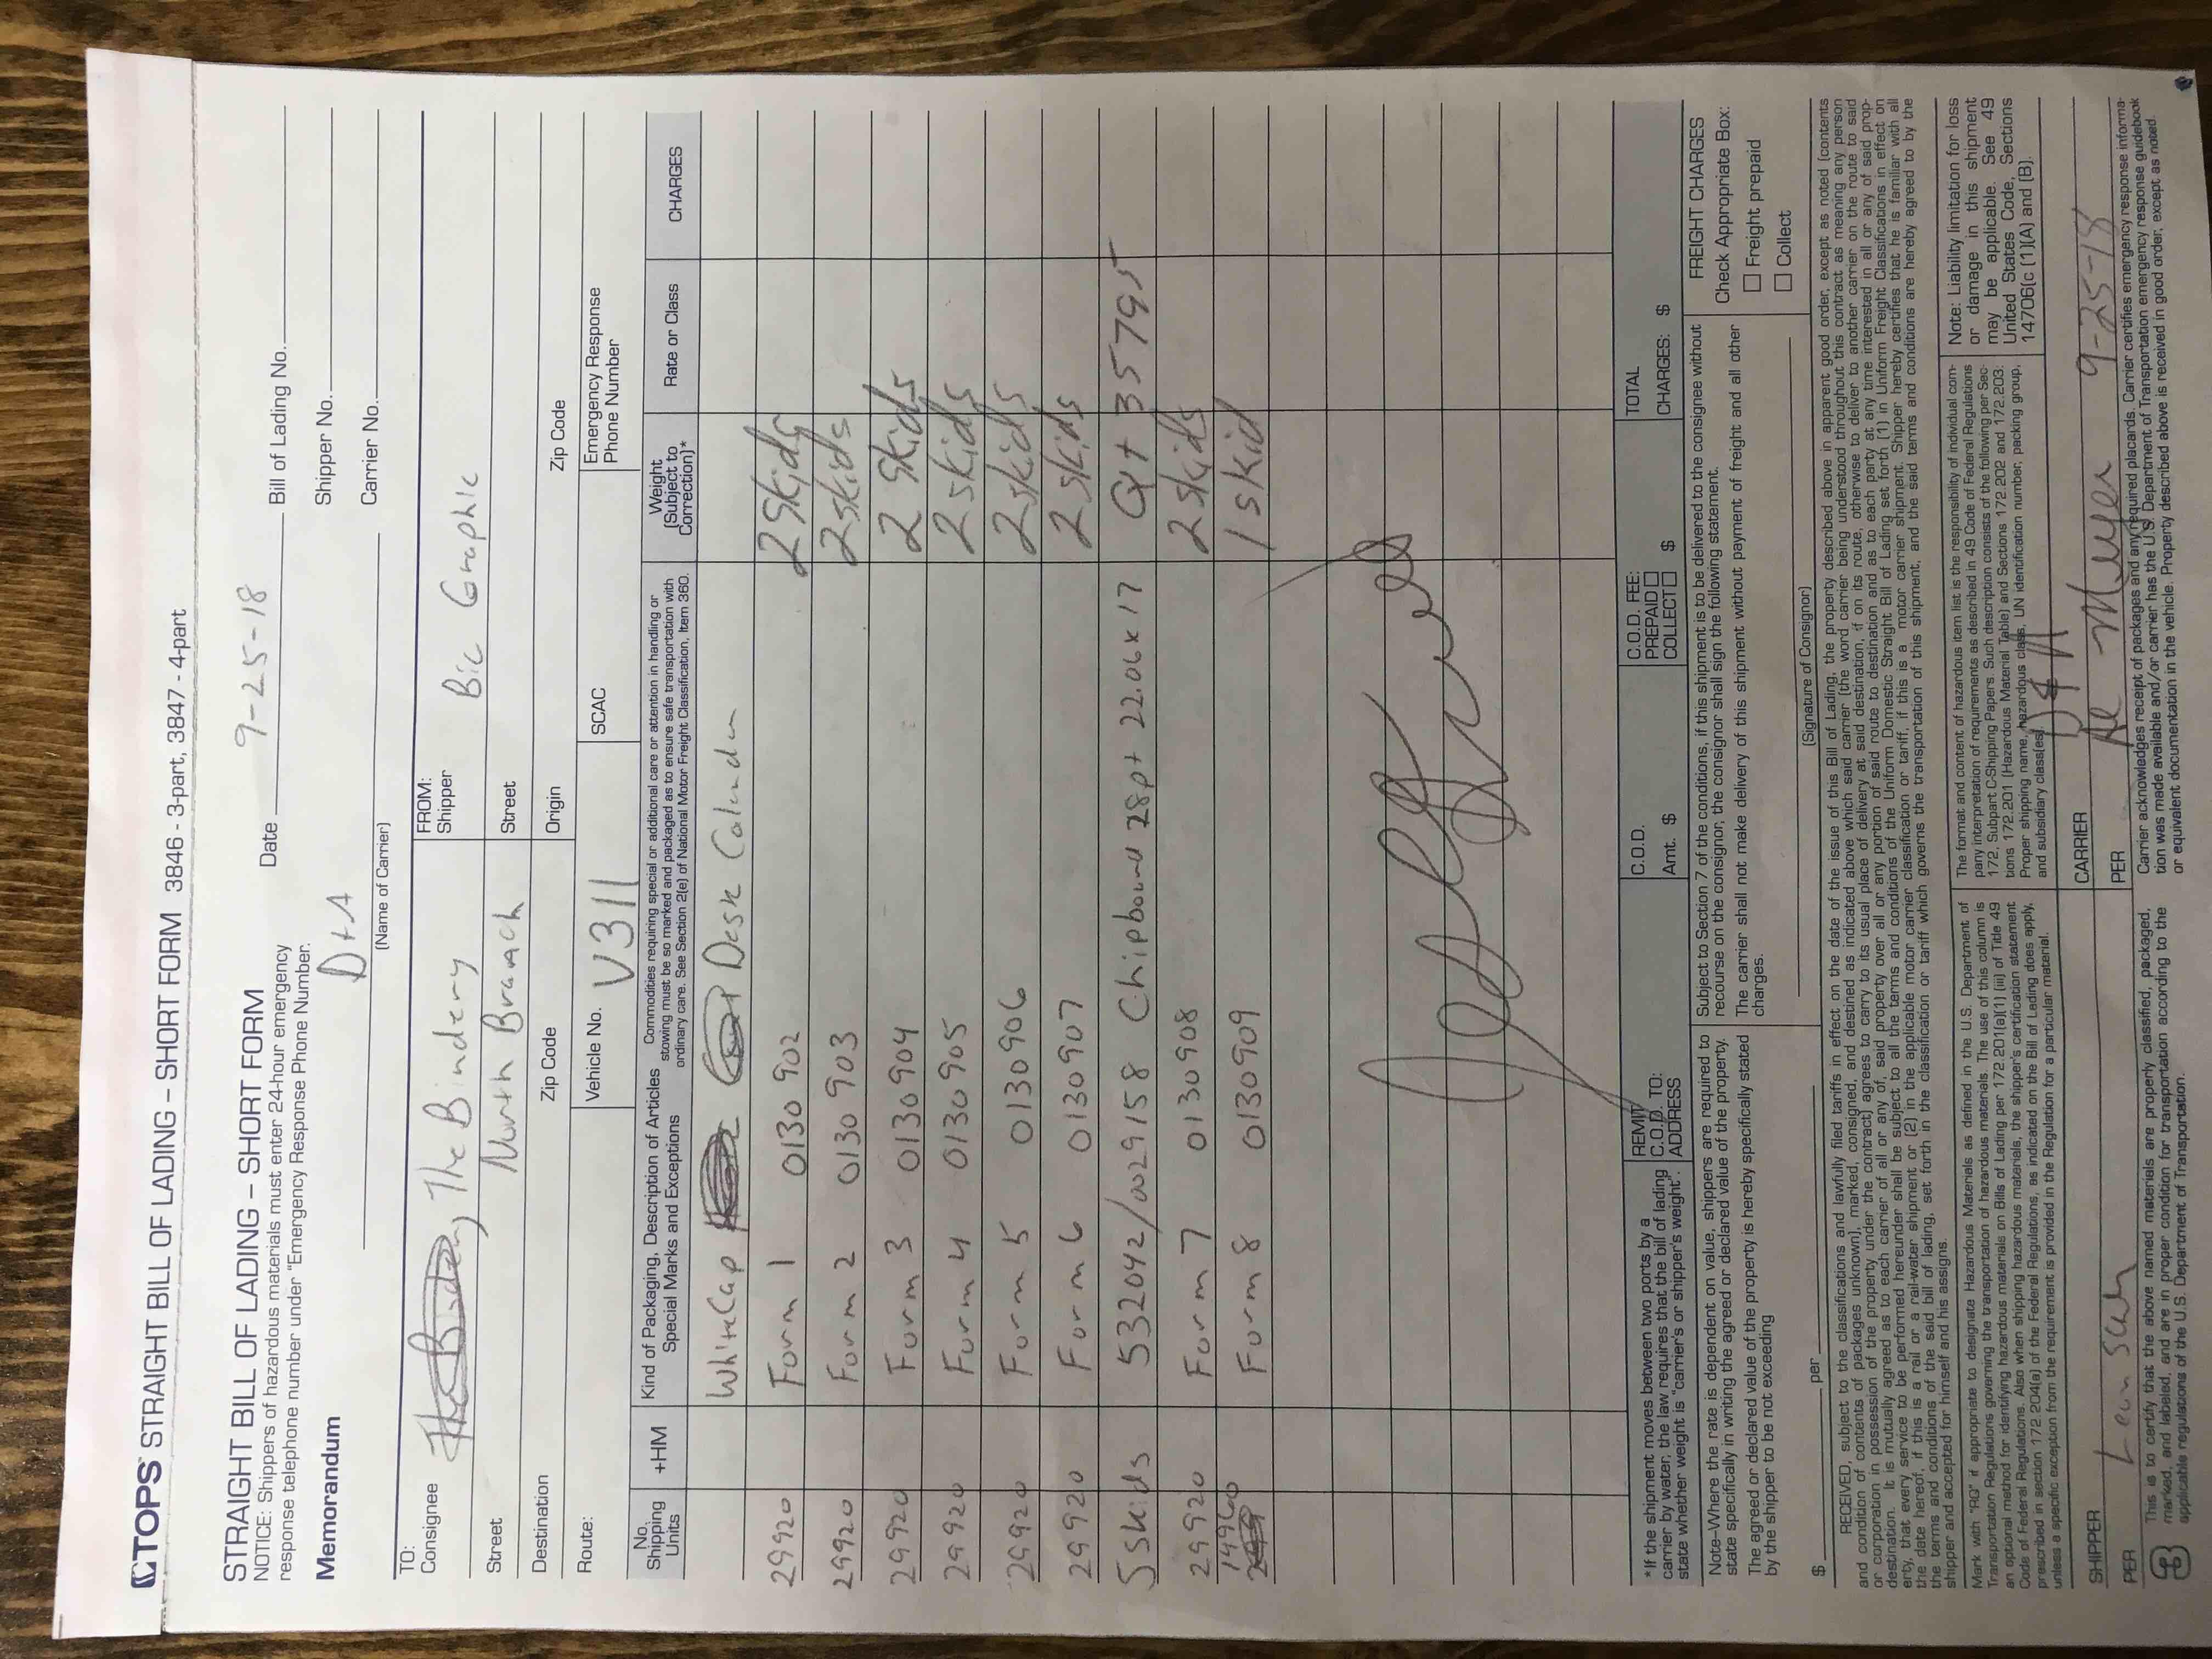 TOPS™ STRAIGHT BILL OF LADING – SHORT FORM 3846 - 3-part, 3847 - 4-part
STRAIGHT BILL OF LADING – SHORT FORM
NOTICE: Shippers of hazardous materials must enter 24-hour emergency
response telephone number under "Emergency Response Phone Number.
Memorandum
Date 9-25-18
Bill of Lading No.
Shipper No.
Carrier No.
D+A
(Name of Carrier)
TO:
Consignee The Bindery
Street North Branch
Destination
Zip Code
FROM:
Shipper Bic Graphic
Street
Origin
Zip Code
Route:
Vehicle No. V311
SCAC
Emergency Response
Phone Number
No.
Shipping
Units
+HM
Kind of Packaging, Description of Articles
Special Marks and Exceptions
Commodities requiring special or additional care or attention in handling or
stowing must be so marked and packaged as to ensure safe transportation with
ordinary care. See Section 2(e) of National Motor Freight Classification, Item 360.
Weight
(Subject to
Correction)*
Rate or Class
CHARGES
WhiteCap Desk Calendar
29920 Form 1 0130902 2 skids
29920 Form 2 0130903 2 skids
29920 Form 3 0130904 2 skids
29920 Form 4 0130905 2 skids
29920 Form 5 0130906 2 skids
29920 Form 6 0130907 2 skids
5 skids 532042/0029158 Chipboard 28pt 22.06x17 Qty 35795
29920 Form 7 0130908 2 skids
14960 Form 8 0130909 1 skid
*If the shipment moves between two ports by a
carrier by water, the law requires that the bill of lading
state whether weight is "carrier's or shipper's weight".
REMIT
C.O.D. TO:
ADDRESS
C.O.D.
Amt. $
C.O.D. FEE:
PREPAID
COLLECT $
TOTAL
CHARGES: $
Note–Where the rate is dependent on value, shippers are required to
state specifically in writing the agreed or declared value of the property.
The agreed or declared value of the property is hereby specifically stated
by the shipper to be not exceeding
$ per
Subject to Section 7 of the conditions, if this shipment is to be delivered to the consignee without
recourse on the consignor, the consignor shall sign the following statement.
The carrier shall not make delivery of this shipment without payment of freight and all other
charges.
(Signature of Consignor)
FREIGHT CHARGES
Check Appropriate Box:
Freight prepaid
Collect
RECEIVED, subject to the classifications and lawfully filed tariffs in effect on the date of the issue of this Bill of Lading, the property described above in apparent good order, except as noted (contents
and condition of contents of packages unknown), marked, consigned, and destined as indicated above which said carrier (the word carrier being understood throughout this contract as meaning any person
or corporation in possession of the property under the contract) agrees to carry to its usual place of delivery at said destination, if on its route, otherwise to deliver to another carrier on the route to said
destination. It is mutually agreed as to each carrier of all or any of, said property over all or any portion of said route to destination and as to each party at any time interested in all or any of said prop-
erty, that every service to be performed hereunder shall be subject to all the terms and conditions of the Uniform Domestic Straight Bill of Lading set forth (1) in Uniform Freight Classifications in effect on
the date hereof, if this is a rail or a rail-water shipment or (2) in the applicable motor carrier classification or tariff, if this is a motor carrier shipment. Shipper hereby certifies that he is familiar with all
the terms and conditions of the said bill of lading, set forth in the classification or tariff which governs the transportation of this shipment, and the said terms and conditions are hereby agreed to by the
shipper and accepted for himself and his assigns.
Mark with "RQ" if appropriate to designate Hazardous Materials as defined in the U.S. Department of
Transportation Regulations governing the transportation of hazardous materials. The use of this column is
an optional method for identifying hazardous materials on Bills of Lading per 172.201(a)(1) (iii) of Title 49
Code of Federal Regulations. Also when shipping hazardous materials, the shipper's certification statement
prescribed in section 172.204(a) of the Federal Regulations, as indicated on the Bill of Lading does apply,
unless a specific exception from the requirement is provided in the Regulation for a particular material.
The format and content of hazardous item list is the responsibility of individual com-
pany interpretation of requirements as described in 49 Code of Federal Regulations
172, Subpart C-Shipping Papers. Such description consists of the following per Sec-
tions 172.201 (Hazardous Material Table) and Sections 172.202 and 172.203:
Proper shipping name, hazardous class, UN identification number, packing group,
and subsidiary class(es).
Note: Liability limitation for loss
or damage in this shipment
may be applicable. See 49
United States Code, Sections
14706(c (1)(A) and (B).
SHIPPER
PER
CARRIER
PER 9-25-18
This is to certify that the above named materials are properly classified, packaged,
marked, and labeled, and are in proper condition for transportation according to the
applicable regulations of the U.S. Department of Transportation.
Carrier acknowledges receipt of packages and any required placards. Carrier certifies emergency response informa-
tion was made available and/or carrier has the U.S. Department of Transportation emergency response guidebook
or equivalent documentation in the vehicle. Property described above is received in good order, except as noted.